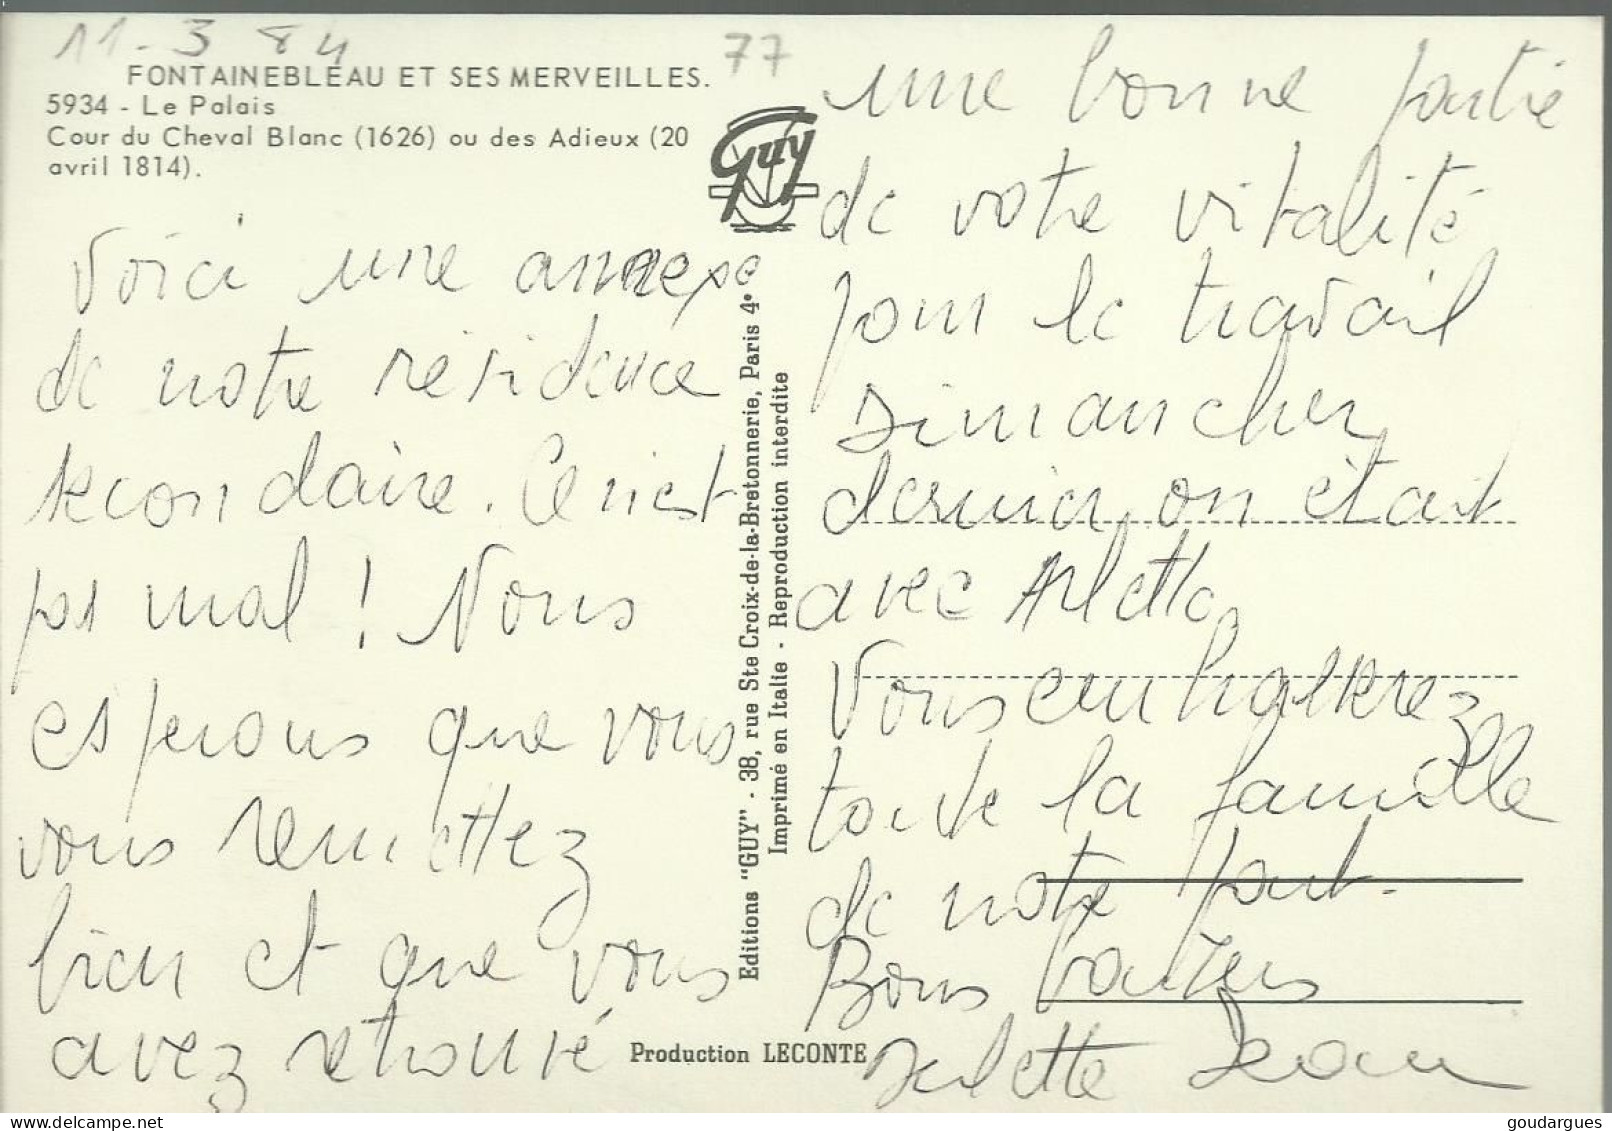 11-3 84
77
FONTAINEBLEAU ET SES MERVEILLES.
5934 - Le Palais
Cour du Cheval Blanc (1626) ou des Adieux (20
avril 1814).
Guy
Voici une annexe
de notre résidence
secondaire. Ce n'est
pas mal ! Nous
esperons que vous
vous remettez
bien et que vous
avez retrouvé
Editions "GUY" - 38, rue Ste Croix-de-la-Bretonnerie, Paris 4e
Imprimé en Italie - Reproduction interdite
Production LECONTE
une bonne partie
de votre vitalité
pour le travail
Dimanche
dernier on était
avec Arlette
Vous embrasserez
toute la famille
de notre part.
Bons baisers
Arlette Jean
goudargues
delcampe.net